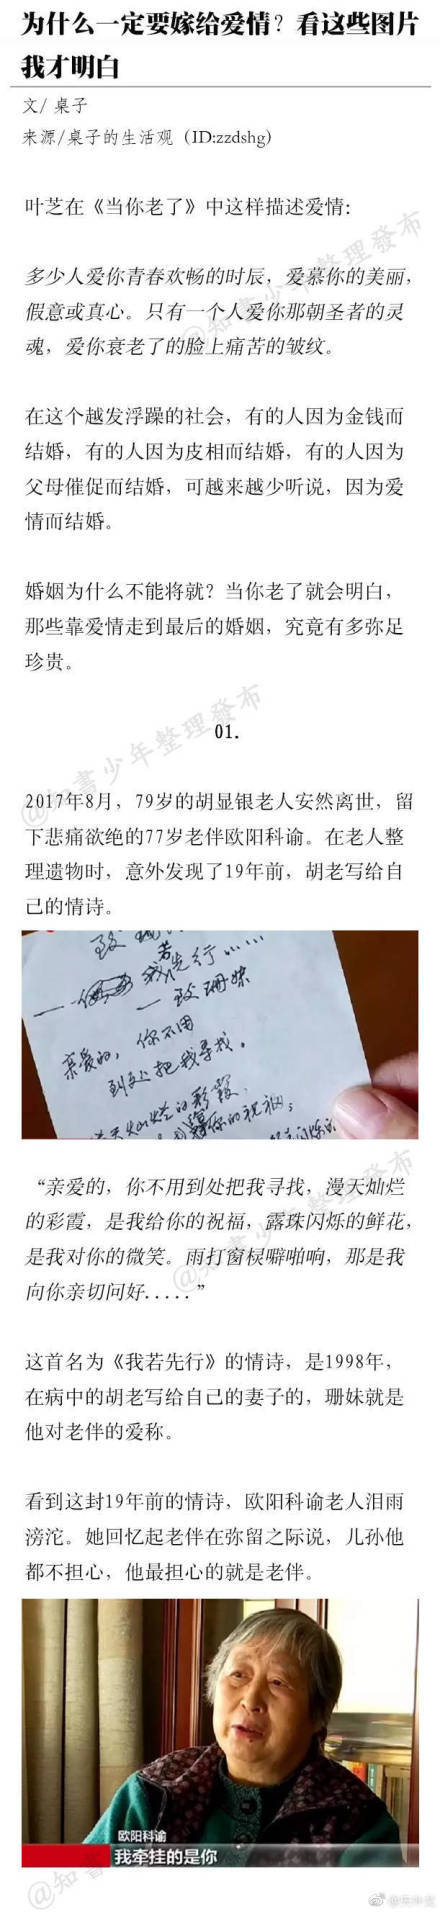 为什么一定要嫁给爱情？看这些图片
我才明白
文/ 桌子
来源/桌子的生活观（ID:zzdshg）
叶芝在《当你老了》中这样描述爱情：
多少人爱你青春欢畅的时辰，爱慕你的美丽，
假意或真心。只有一个人爱你那朝圣者的灵
魂，爱你衰老了的脸上痛苦的皱纹。
在这个越发浮躁的社会，有的人因为金钱而
结婚，有的人因为皮相而结婚，有的人因为
父母催促而结婚，可越来越少听说，因为爱
情而结婚。
婚姻为什么不能将就？当你老了就会明白，
那些靠爱情走到最后的婚姻，究竟有多弥足
珍贵。
@知書少年整理發布
01.
2017年8月，79岁的胡显银老人安然离世，留
下悲痛欲绝的77岁老伴欧阳科谕。在老人整
理遗物时，意外发现了19年前，胡老写给自
己的情诗。
若
我先行……
—致珊妹
亲爱的，你不用
到处把我寻找。
灿烂的彩霞，
你的祝福；
“亲爱的，你不用到处把我寻找，漫天灿烂
的彩霞，是我给你的祝福，露珠闪烁的鲜花，
是我对你的微笑。雨打窗棂噼啪响，那是我
向你亲切问好.....”
@知書少年整理發布
这首名为《我若先行》的情诗，是1998年，
在病中的胡老写给自己的妻子的，珊妹就是
他对老伴的爱称。
看到这封19年前的情诗，欧阳科谕老人泪雨
滂沱。她回忆起老伴在弥留之际说，儿孙他
都不担心，他最担心的就是老伴。
欧阳科谕
我牵挂的是你
@知書少年整理發布